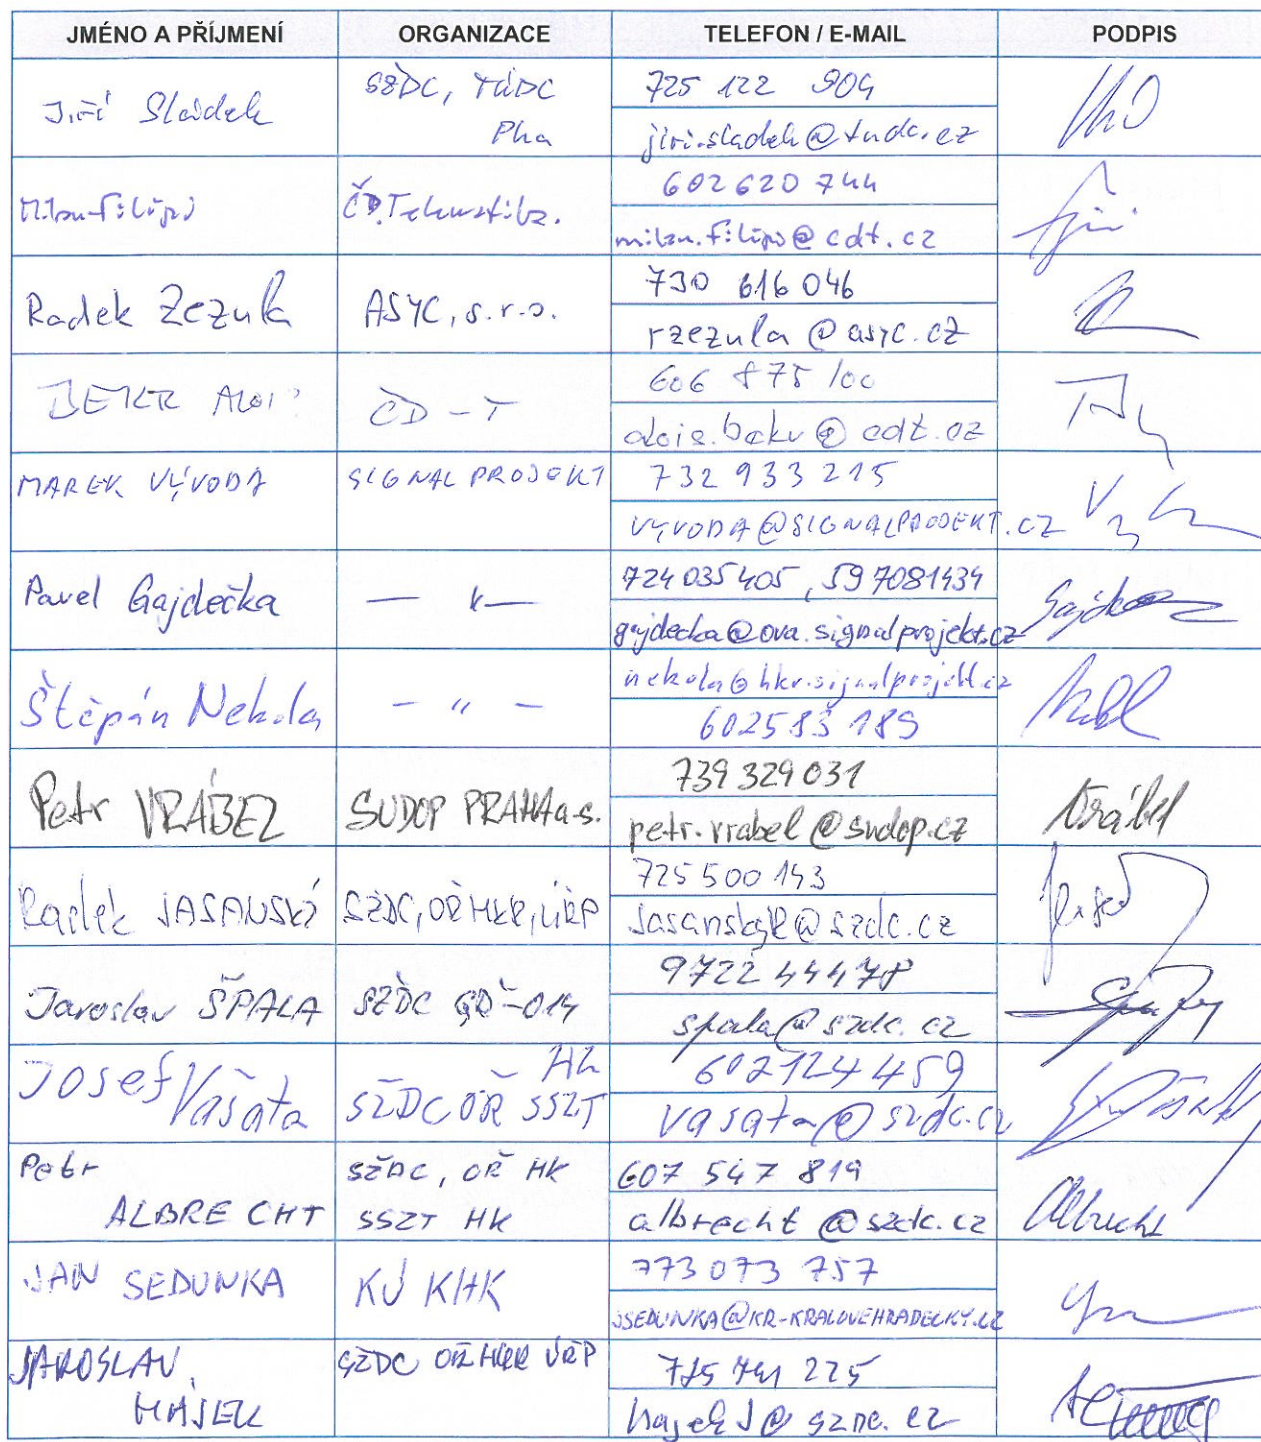 JMÉNO A PŘÍJMENÍ ORGANIZACE TELEFON / E-MAIL PODPIS
Jiří Sládek SŽDC, TÚDC Pha 725 122 904
jiri.sladek@tudc.cz
Milan Filipi ČD Telematika. 602 620 744
milan.filipi@cdt.cz
Radek Zezula ASYC, s.r.o. 730 616 046
rzezula@asyc.cz
BEKR ČD - T 606 875 100
alois.bekr@cdt.cz
MAREK VÝVODA SIGNAL PROJEKT 732 933 215
VYVODA@SIGNALPROJEKT.CZ
Pavel Gajdečka — " — 724 035 405, 597081434
gajdecka@ova.signalprojekt.cz
Štěpán Nekola — " — nekola@hkr.signalprojekt.cz
602583189
Petr VRÁBEL SUDOP PRAHA a.s. 739 329 031
petr.vrabel@sudop.cz Vrábel
Radek JASANSKÝ SŽDC, OŘ HKR, ÚŘP 725 500 143
JasanskyR@szdc.cz
Jaroslav ŠPALA SŽDC GŘ-O14 9722 44478
spala@szdc.cz
Josef Vašata SŽDC OŘ SSZT 602124459
vasata@szdc.cz
Petr SŽDC, OŘ HK 607 547 819
ALBRECHT SSZT HK albrecht@szdc.cz Albrecht
JAN SEDUNKA KÚ KHK 773 073 757
JSEDUNKA@KR-KRALOVEHRADECKY.CZ
JAROSLAV SŽDC OŘ HKR ÚŘP
HÁJEK hajekJ@szdc.cz